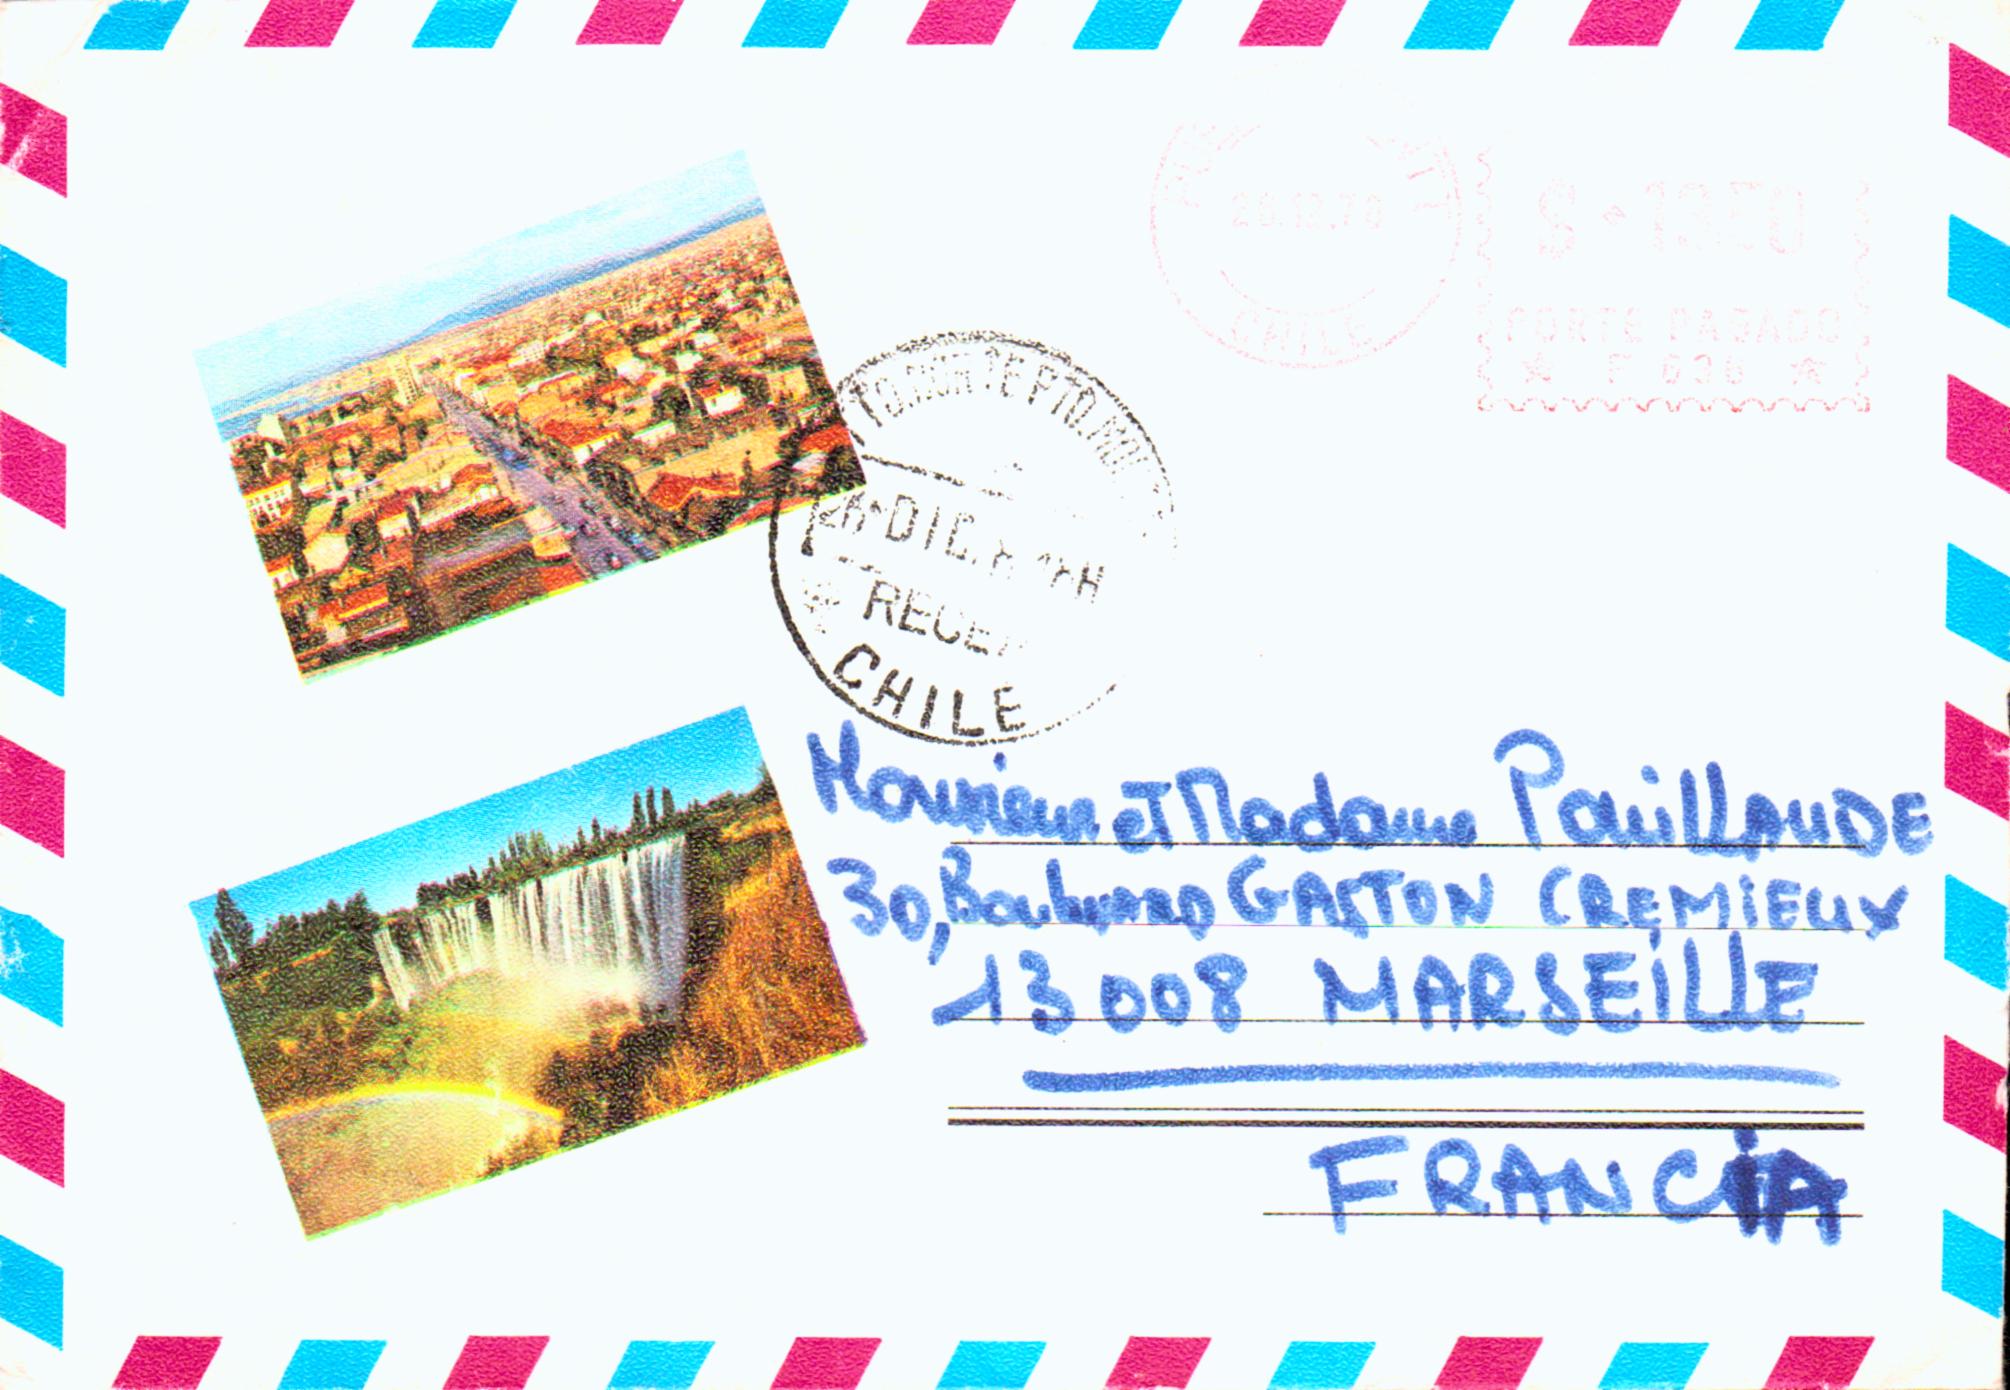 CHILE
PORTE PAGADO
PTO. MONTT
DIC.
CHILE
Monsieur et Madame Pouillaude
30, Boulevard GASTON CREMIEUX
13008 MARSEILLE
FRANCIA